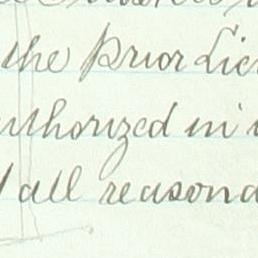 the Prior Lie
uthorized in
all reasona